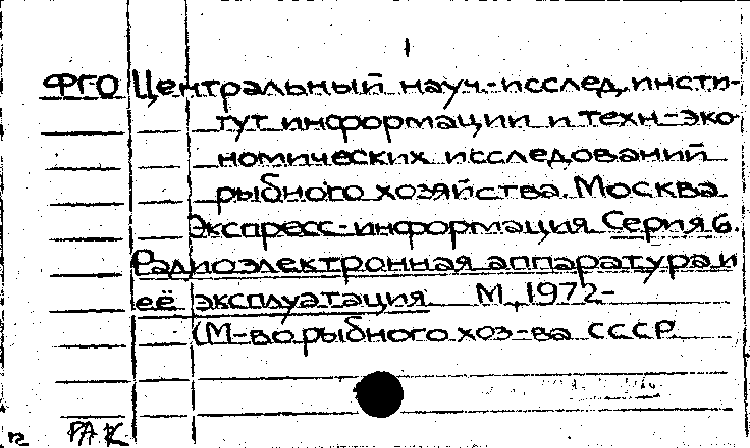 1
ФГО Центральный науч.-исслед. инсти-
тут информации и техн.-эко-
номических исследований
рыбного хозяйства. Москва.
Экспресс-информация. Серия 6.
Радиоэлектронная аппаратура и
её эксплуатация М., 1972-
(М-во рыбного хоз-ва СССР
12 РАК